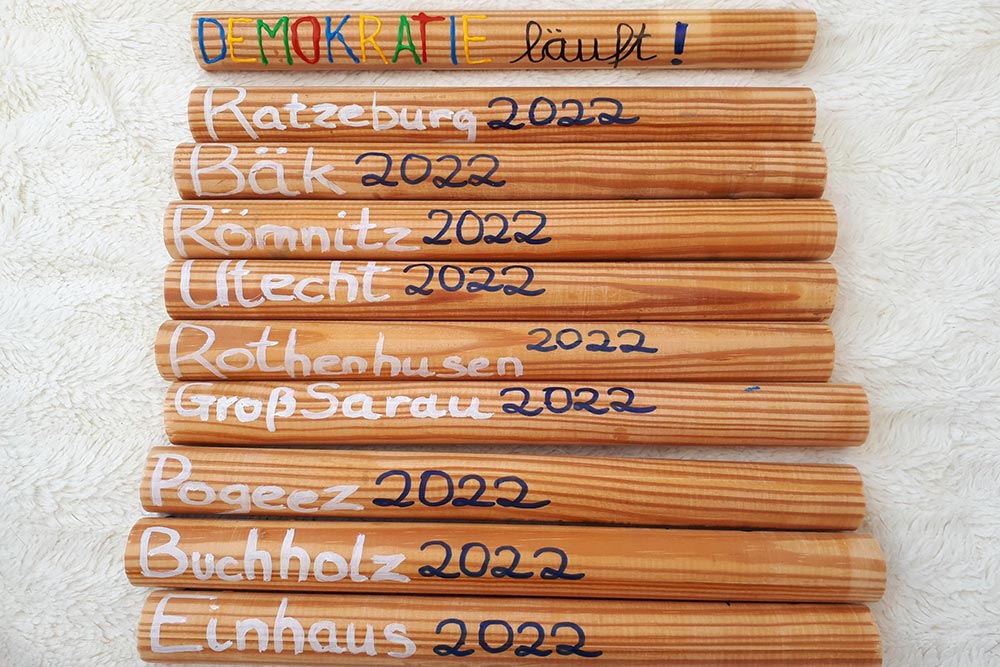 DEMOKRATIE läuft!
Ratzeburg 2022
Bäk 2022
Römnitz 2022
Utecht 2022
Rothenhusen 2022
Groß Sarau 2022
Pogeez 2022
Buchholz 2022
Einhaus 2022